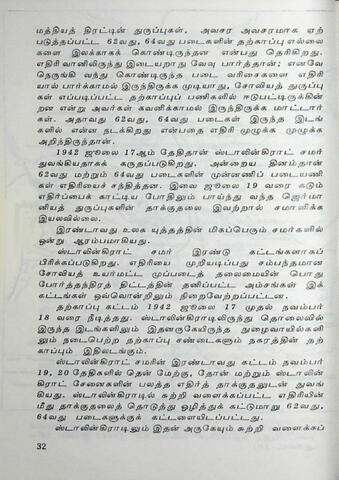 மத்தியத் திரட்டின் துருப்புகள், அவசர அவசரமாக ஏற்
படுத்தப்பட்ட 62வது, 64வது படைகளின் தற்காப்பு எல்லை
களை இலக்காகக் கொண்டிருந்தன என்பது தெரிகிறது.
எதிரி வானிலிருந்து இடையறாது வேவு பார்த்தான்; எனவே
நெருங்கி வந்து கொண்டிருந்த படை வரிசைகளை எதிரி
யால் பார்க்காமல் இருந்திருக்க முடியாது, சோவியத் துருப்பு
கள் எப்படிப்பட்ட தற்காப்புப் பணிகளில் ஈடுபட்டிருக்கின்
றன என்று அவர்கள் கவனிக்காமல் இருந்திருக்க மாட்டார்
கள். அதாவது 62வது, 64வது படைகள் இருந்த இடங்
களில் என்ன நடக்கிறது என்பதை எதிரி முழுக்க முழுக்க
அறிந்திருந்தான்.
1942 ஜூலை 17ஆம் தேதிதான் ஸ்டாலின்கிராட் சமர்
துவங்கியதாகக் கருதப்படுகிறது. அன்றைய தினம்தான்
62வது மற்றும் 64வது படைகளின் முன்னணிப் படையணி
கள் எதிரியைச் சந்தித்தன. இவை ஜூலை 19 வரை கடும்
எதிர்ப்பைக் காட்டிய போதிலும் பாய்ந்து வந்த ஜெர்மா
னியத் துருப்புகளின் தாக்குதலை இவற்றால் சமாளிக்க
இயலவில்லை.
இரண்டாவது உலக யுத்தத்தின் மிகப்பெரும் சமர்களில்
ஒன்று ஆரம்பமாகியது.
ஸ்டாலின்கிராட் சமர் இரண்டு கட்டங்களாகப்
பிரிக்கப்படுகிறது. எதிரியை முறியடிப்பது சம்பந்தமான
சோவியத் உயர்மட்ட முப்படைத் தலைமையின் பொது
போர்த்தந்திரத் திட்டத்தின் தனிப்பட்ட அம்சங்கள் இக்
கட்டங்கள் ஒவ்வொன்றிலும் நிறைவேற்றப்பட்டன.
தற்காப்பு கட்டம் 1942 ஜூலை 17 முதல் நவம்பர்
18 வரை நீடித்தது. ஸ்டாலின்கிராடிலிருந்து தொலைவில்
இருந்த இடங்களிலும் இதனருகேயிருந்த நுழைவாயில்களி
லும் நடைபெற்ற தற்காப்பு சண்டைகளும் நகரத்தின் தற்
காப்பும் இதிலடங்கும்.
ஸ்டாலின்கிராட் சமரின் இரண்டாவது கட்டம் நவம்பர்
19, 20 தேதிகளில் தென் மேற்கு, தோன் மற்றும் ஸ்டாலின்
கிராட் சேனைகளின் பலத்த எதிர்த் தாக்குதலுடன் துவங்
கியது. ஸ்டாலின்கிராடில் சுற்றி வளைக்கப்பட்ட எதிரியின்
மீது தாக்குதலைத் தொடுத்து ஒழித்துக் கட்டுமாறு 62வது,
64வது படைகளுக்குக் கட்டளையிடப்பட்டது.
ஸ்டாலின்கிராடிலும் இதன் அருகேயும் சுற்றி வளைக்கப்
32